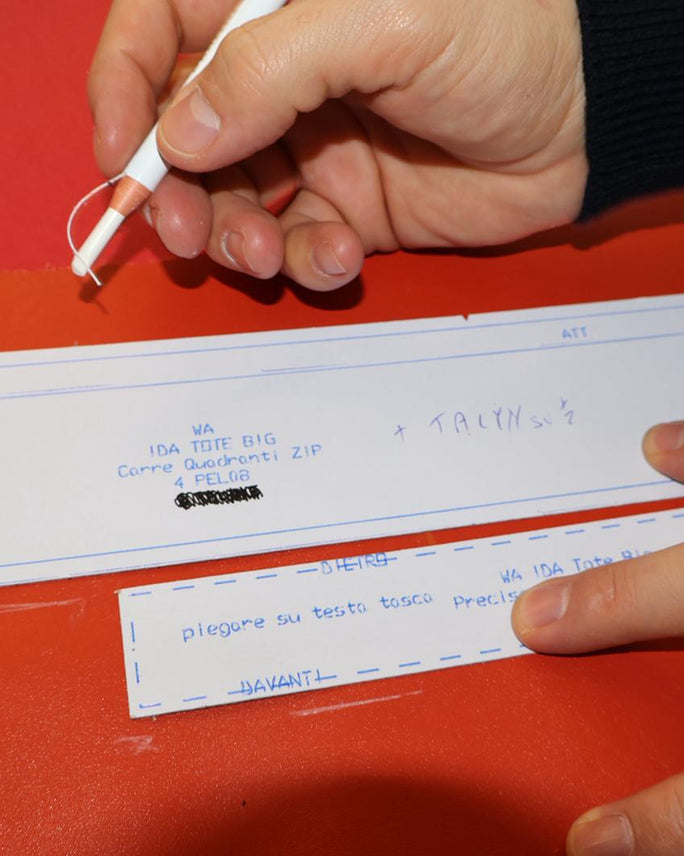 ATT
WA
IDA TOTE BIG
Carre Quadranti ZIP
4 PEL08
+ TALYN su
DIETRO
WA IDA Tote BIG
piegare su testa tasca Precis
DAVANTI